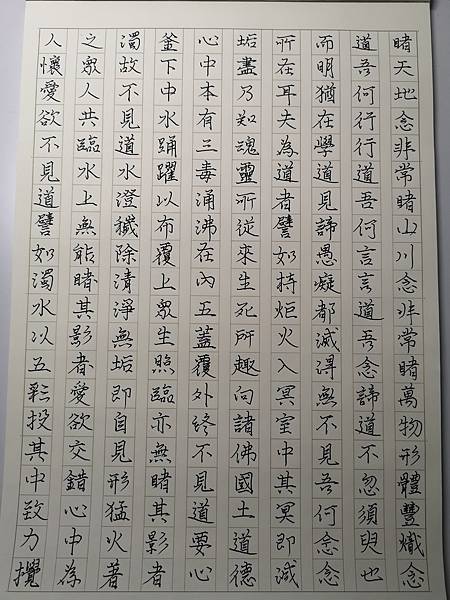 人懷愛欲不見道譬如濁水以五彩投其中致力攪
之眾人共臨水上無能睹其影者愛欲交錯心中為
濁故不見道水澄穢除清淨無垢即自見形猛火著
釜下中水踊躍以布覆上眾生照臨亦無睹其影者
心中本有三毒涌沸在內五蓋覆外終不見道要心
垢盡乃知魂靈所從來生死所趣向諸佛國土道德
所在耳夫為道者譬如持炬火入冥室中其冥即滅
而明猶在學道見諦愚癡都滅得無不見吾何念念
道吾何行行道吾何言言道吾念諦道不忽須臾也
睹天地念非常睹山川念非常睹萬物形體豐熾念